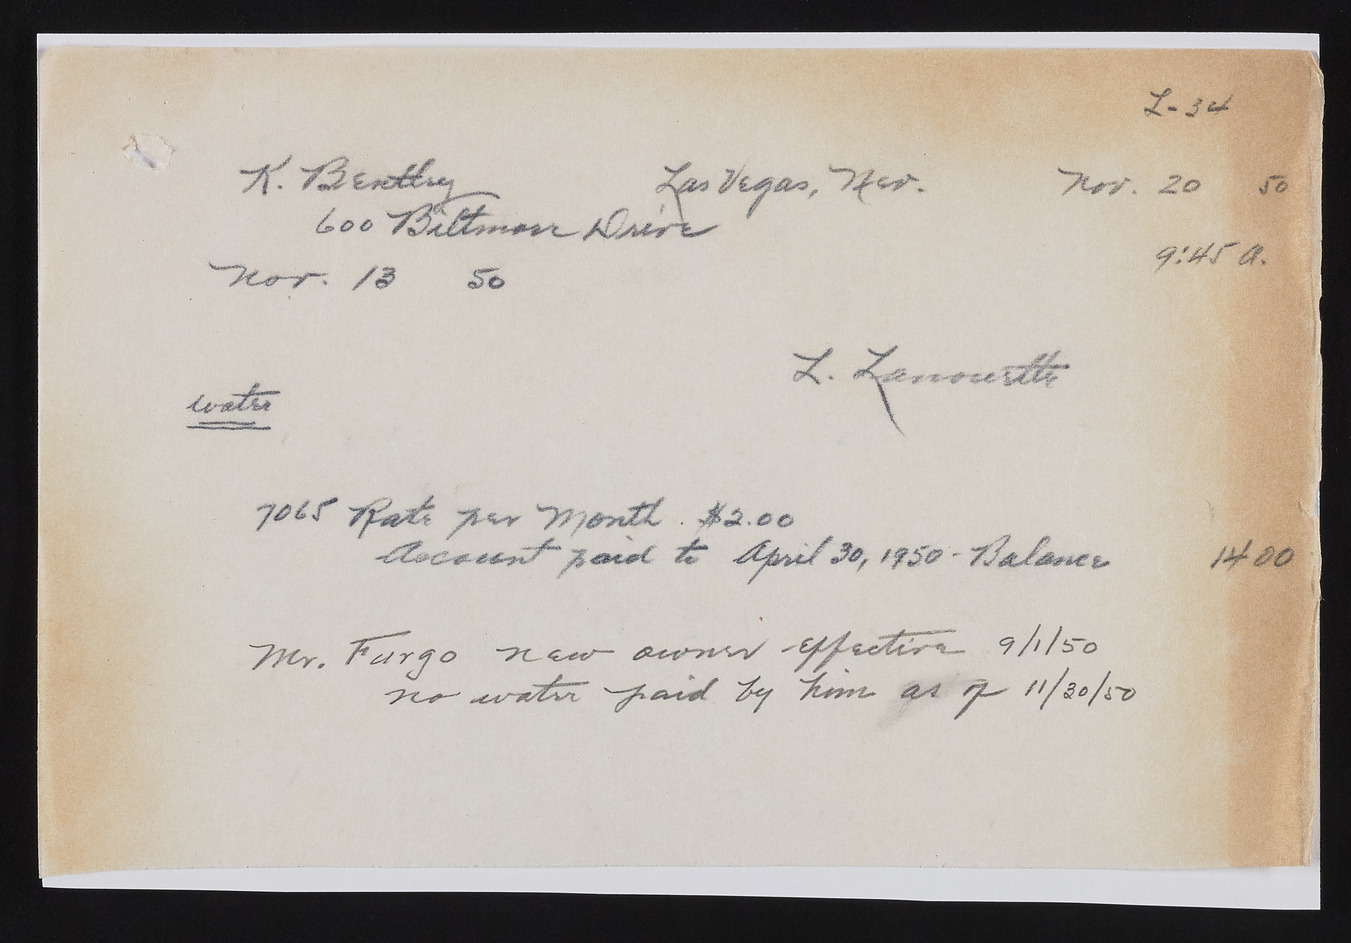 L-34
K. Bentley Las Vegas, Nev. Nov. 20 50
600 Biltmore Drive
9:45 A.
Nov. 13 50
L. Lanourette
water
7065 Rate per Month. $2.00
Account paid to April 30, 1950 - Balance 14 00
Mr. Furgo new owner effective 9/1/50
no water paid by him as of 11/30/50